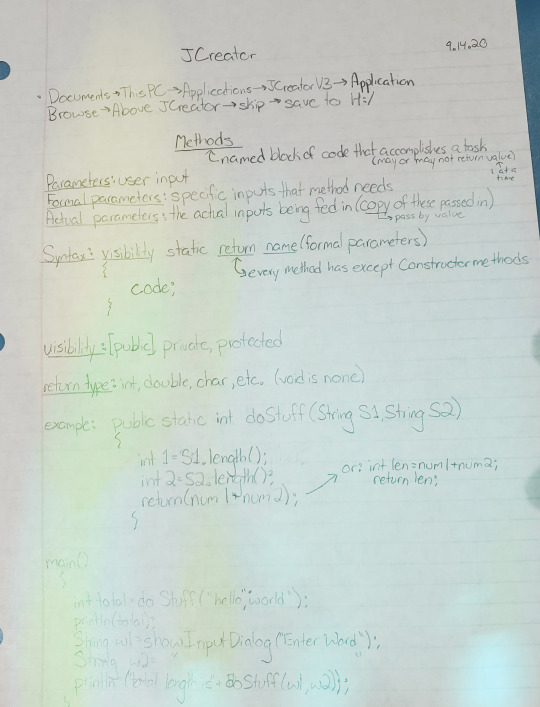 9.14.20
JCreator
• Documents→This PC→Applications→JCreator V3→Application
Browse→Above JCreator→skip→save to H:/
Methods
named block of code that accomplishes a task
(may or may not return value)
1 at a time
Parameters: user input
Formal parameters: specific inputs that method needs
Actual parameters: the actual inputs being fed in (copy of these passed in)
→pass by value
Syntax: visibility static return name(formal parameters)
{
every method has except Constructer methods
code;
}
visibility: [public], private, protected
return type: int, double, char, etc. (void is none)
example: public static int doStuff(String S1, String S2)
{
int 1 = S1.length();
int 2 = S2.length();
return(num1+num2);
or: int len=num1+num2;
return len;
}
main()
{
int total = do Stuff("hello", "world");
println(total);
String w1 = showInputDialog("Enter Word");
String w2 = "
println("total length is"+doStuff(w1, w2));
}